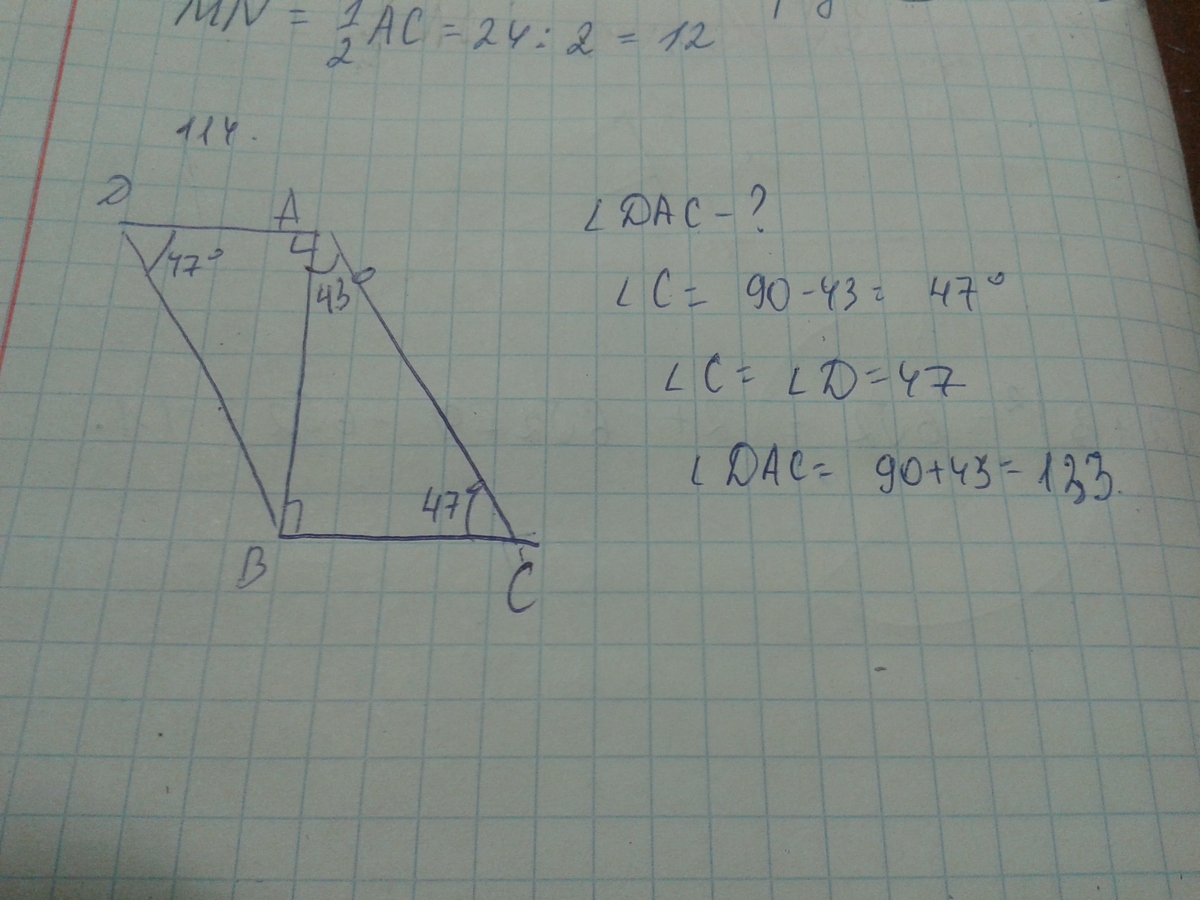 MN = 1/2 AC = 24 : 2 = 12
114.
D A
47°
43°
∠DAC - ?
∠C = 90 - 43 = 47°
∠C = ∠D = 47
∠DAC = 90 + 43 = 133.
47°
B
C